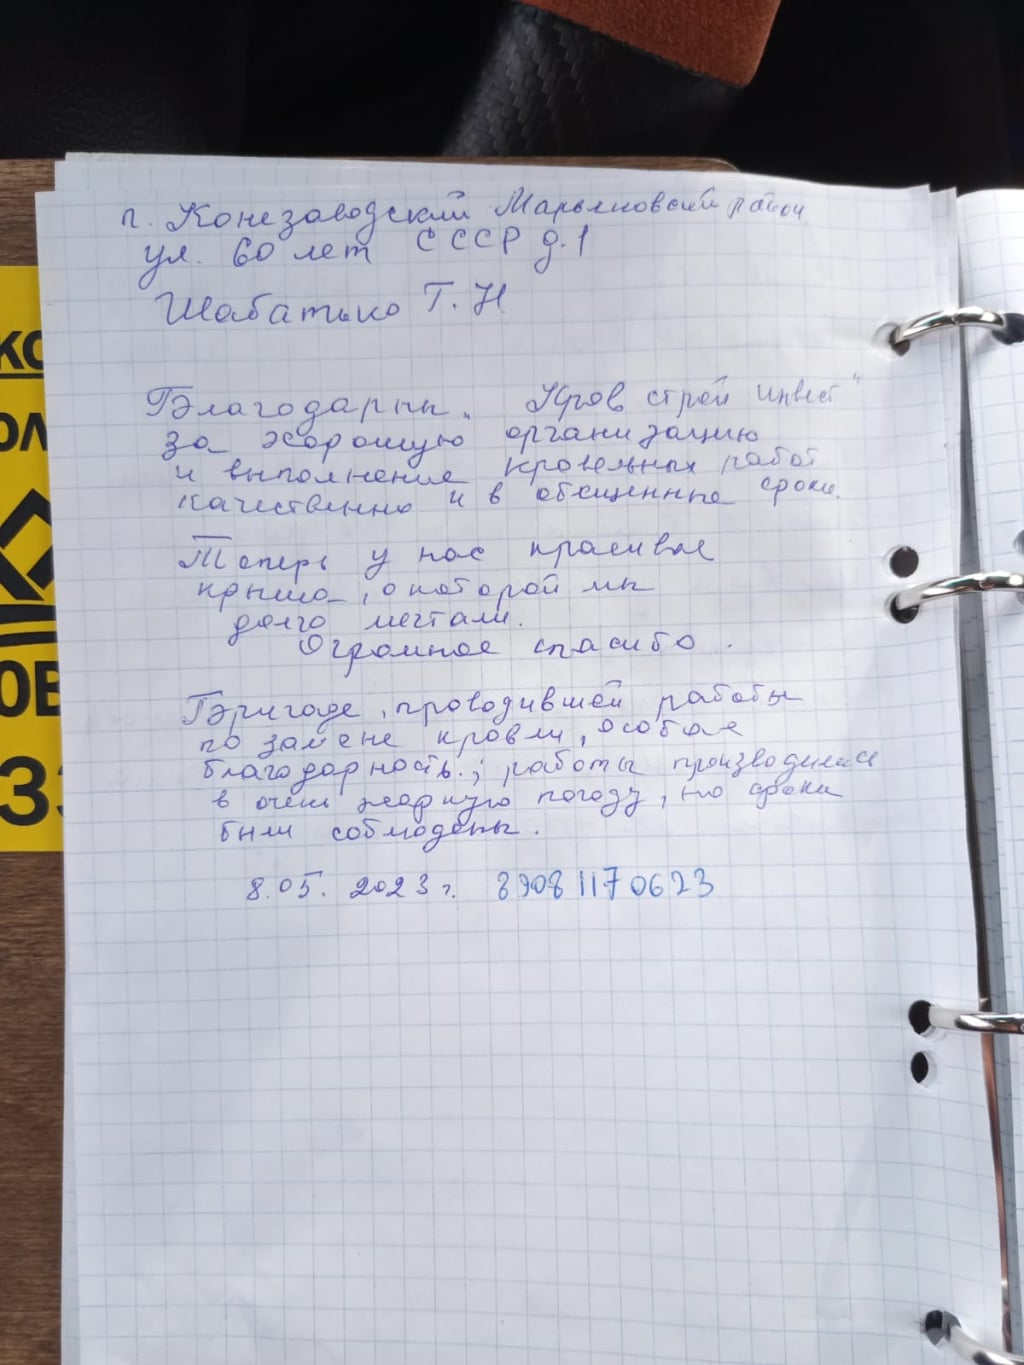 п. Конезаводский Марьяновский район
ул. 60 лет СССР д. 1
Шабатько Т. Н
Благодарны „Кров строй инвест"
за хорошую организацию
и выполнение кровельных работ
качественно и в обещенные сроки.
Теперь у нас красивая
крыша, о которой мы
долго мечтали.
Огромное спасибо.
Бригаде, проводившей работы
по замене кровли, особая
благодарность.; работы производились
в очень жаркую погоду, но сроки
были соблюдены.
8.05. 2023 г. 89081170623
ОВ
33